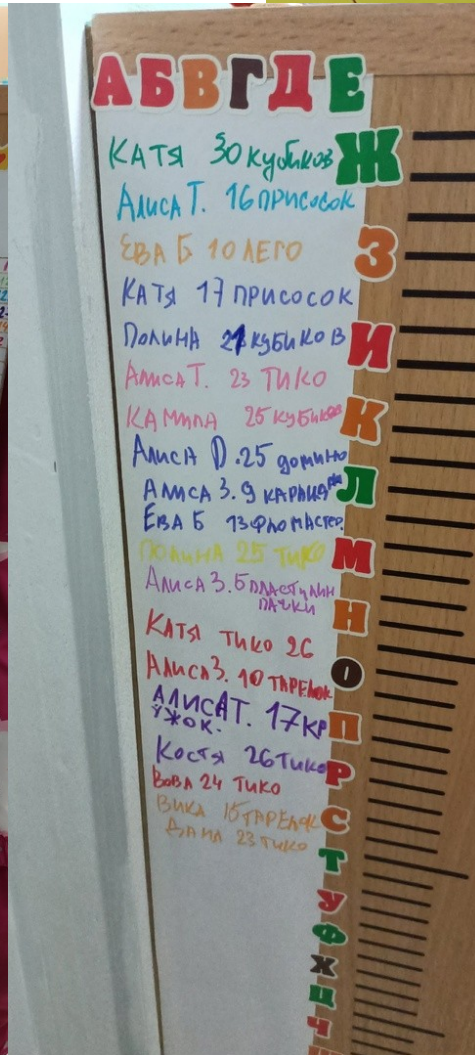 АБВГДЕ
Ж
З
И
К
Л
М
Н
О
П
Р
С
Т
У
Ф
Х
Ц
Ч
КАТЯ 30 кубиков
АЛИСА Т. 16 ПРИСОСОК
ЕВА Б 10 ЛЕГО
КАТЯ 17 ПРИСОСОК
ПОЛИНА 21 КУБИКОВ
АЛИСА Т. 23 ТИКО
КАМИЛА 25 КУБИКОВ
АЛИСА D. 25 домино
АЛИСА З. 9 КАРАНД
ЕВА Б 13 ФЛОМАСТЕР.
ПОЛИНА 25 ТИКО
АЛИСА З. 5 ПЛАСТИЛИН
ПАЧКИ
КАТЯ ТИКО 26
АЛИСА З. 10 ТАРЕЛОК
АЛИСА Т. 17 КР
УЖОК.
КОСТЯ 26 ТИКО
ВОВА 24 ТИКО
ВИКА 15 ТАРЕЛОК
ДАНА 23 ТИКО